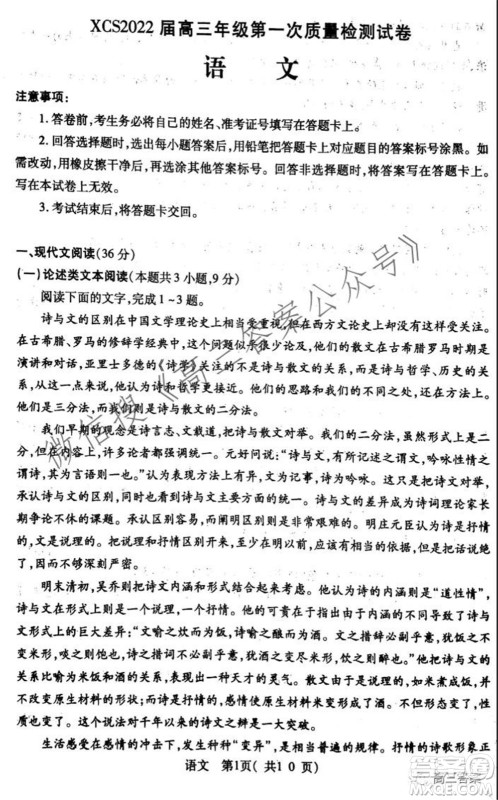 XCS2022届高三年级第一次质量检测试卷
语 文
注意事项:
1.答卷前,考生务必将自己的姓名、准考证号填写在答题卡上。
2.回答选择题时,选出每小题答案后,用铅笔把答题卡上对应题目的答案标号涂黑。如
需改动,用橡皮擦干净后,再选涂其他答案标号。回答非选择题时,将答案写在答题卡上。
写在本试卷上无效。
3.考试结束后,将答题卡交回。
一、现代文阅读(36分)
(一)论述类文本阅读(本题共3小题,9分)
阅读下面的文字,完成1~3题。
诗与文的区别在中国文学理论史上相当受重视,但在西方文论史上却没有这样受关注。
在古希腊、罗马的修辞学经典中,这个问题似乎很少论及,他们的散文在古希腊罗马时期是
演讲和对话,亚里士多德的《诗学》关注的不是诗与散文的关系,而是诗与哲学、历史的关
系,从这一点来说,他认为诗和哲学更接近。他们的思路和我们的不同之处,还在方法上。
他们是三分法,而我们则是诗与散文的二分法。
我们早期的观念是诗言志、文载道,把诗与散文对举。我们的二分法,虽然形式上是二
分,但在内容上,许多论者都强调统一。元好问说:“诗与文,有所记述之谓文,吟咏性情之
谓诗,其为言语则一也。”认为表现方法上是一致的,文为记事,诗为吟咏。这只是把对举,
承认诗与文的区别,同时达到诗与文主要方面的统一。诗与文的差异成为诗词理论家长
期争论不休的课题。承认区别容易,而阐明区别则是非常艰难的。明庄元臣认为诗是抒
情的,文是说理的。把说理和抒情区别开来,至少在当时应该是很有见地的,但仍是说服
的,因而不够深刻严密。
明末清初,吴乔则把诗文内涵和形式结合起来考虑。他认为诗的内涵则是“道性情”,
诗与文在形式上则是一个大问题。他的可贵在于指出由于内涵的不同导致了诗与
文形式上的巨大差异:“文喻之炊而为饭,诗喻之酿而为酒。文之措辞必副乎意,犹饭之不
变米形,啖之则饱也,诗之措词不必副乎意,犹酒之变尽米形,饮之则醉也。”他把诗与文的
关系比喻为米饭和酒的关系。散文由于是说理的,如米煮成饭,并
不改变原生材料的形状;而诗是抒情的,感情使原生材料的形式为之大变,不但变形,性
质也变了。这对千年以来的诗文之辩是一大突破。
生活感受在感情的冲击下,发生种种“变异”,是相当普遍的规律。抒情的诗歌形象正
语文 第1页(共10页)
微信搜《高三答案公众号》
高三答案